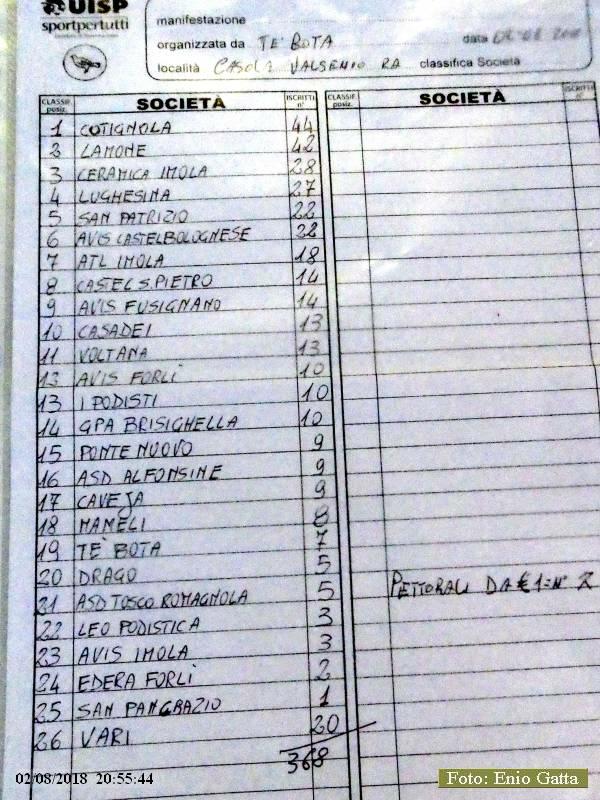 UISP
sportpertutti
manifestazione
organizzata da TE' BOTA data
località CASOLA VALSENIO RA classifica Società
CLASSIF. posiz. SOCIETÀ ISCRITTI n° CLASSIF. posiz. SOCIETÀ ISCRITTI n°
1 COTIGNOLA 44
2 LAMONE 42
3 CERAMICA IMOLA 28
4 LUGHESINA 27
5 SAN PATRIZIO 22
6 AVIS CASTELBOLOGNESE 22
7 ATL IMOLA 18
8 CASTEL S. PIETRO 14
9 AVIS FUSIGNANO 14
10 CASADEI 13
11 VOLTANA 13
12 AVIS FORLÌ 10
13 I PODISTI 10
14 GPA BRISIGHELLA 10
15 PONTE NUOVO 9
16 ASD ALFONSINE 9
17 CAVEJA 9
18 MAMELI 8
19 TE' BOTA 7
20 DRAGO 5
21 ASD TOSCO ROMAGNOLA 5 PETTORALI DA € 1= N° 2
22 LEO PODISTICA 3
23 AVIS IMOLA 3
24 EDERA FORLÌ 2
25 SAN PANCRAZIO 1
26 VARI 20
368
02/08/2018 20:55:44
Foto: Enio Gatta